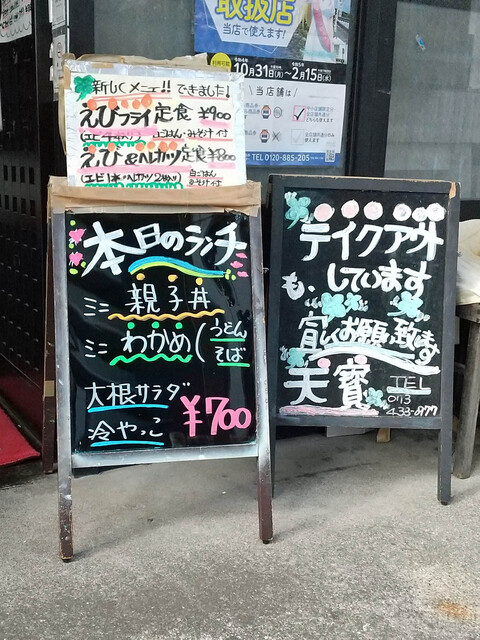 取扱店
当店で使えます!
令和4年 令和5年
10月31日(月)〜2月15日(水)
当店舗は
TEL 0120-885-205
新しくメニュー!!できました!
えびフライ定食 ¥900
ごはん・みそ汁付
えび&ヘレカツ定食 ¥800
本日のランチ
ミニ 親子丼
ミニ わかめ(うどん
そば
大根サラダ
冷やっこ
¥700
テイクアウト
も、しています
宜しくお願い致します
天寳
TEL